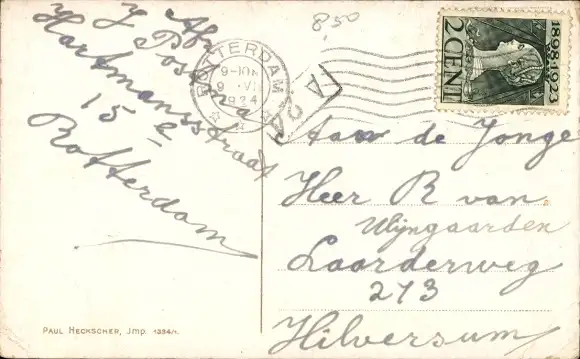 Afz
J Postma
Hartmansstraat
15 e
Rotterdam
8,50
ROTTERDAM
9-10
9 VI
1924
2 CENT
1898-1923
Aan de Jonge
Heer R van
Wijngaarden
Laarderweg
273
Hilversum
PAUL HECKSCHER, Jmp. 1334/1.